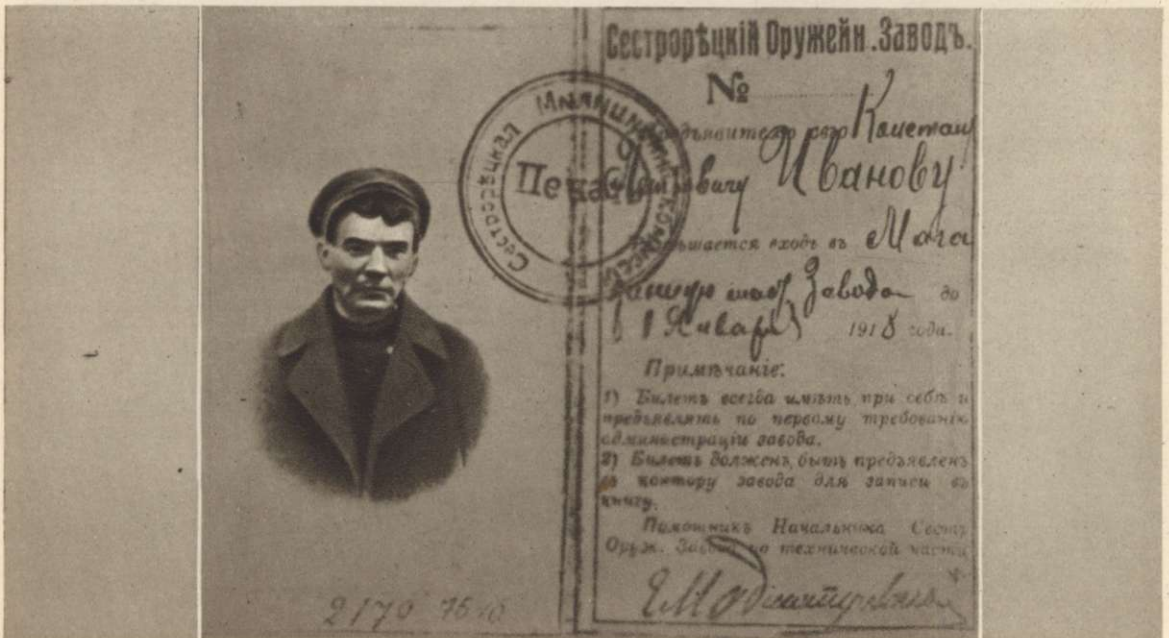 Сестрорѣцкій Оружейн. Заводъ.
№
Предъявителю сего Констан
Петровичу Иванову
ается входъ въ Мага
Завода до
1 Января 1918 года.
Примѣчаніе:
1) Билетъ всегда имѣть при себѣ и
предъявлять по первому требованію
администраціи завода.
2) Билетъ долженъ быть предъявленъ
въ контору завода для записи въ
книгу.
Помощникъ Начальника Сестр.
Оруж. Завода по технической части
Сестрорѣцкая
Печать
2170